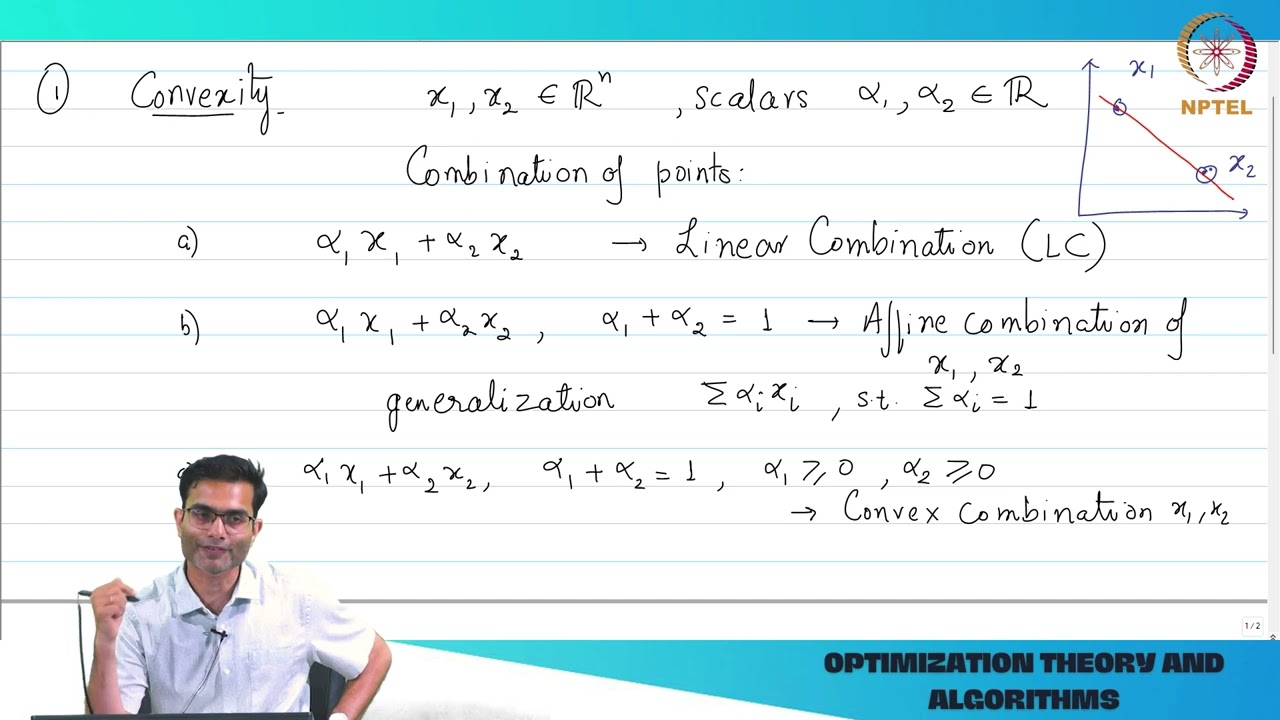 ① Convexity x₁, x₂ ∈ ℝⁿ, scalars α₁, α₂ ∈ ℝ
x₁
x₂
NPTEL
Combination of points:
a) α₁ x₁ + α₂ x₂ → Linear Combination (LC)
b) α₁ x₁ + α₂ x₂, α₁ + α₂ = 1 → Affine combination of
x₁, x₂
generalization Σ αᵢ xᵢ, s.t. Σ αᵢ = 1
α₁ x₁ + α₂ x₂, α₁ + α₂ = 1, α₁ ≥ 0, α₂ ≥ 0
→ Convex combination x₁, x₂
1 / 2
OPTIMIZATION THEORY AND
ALGORITHMS